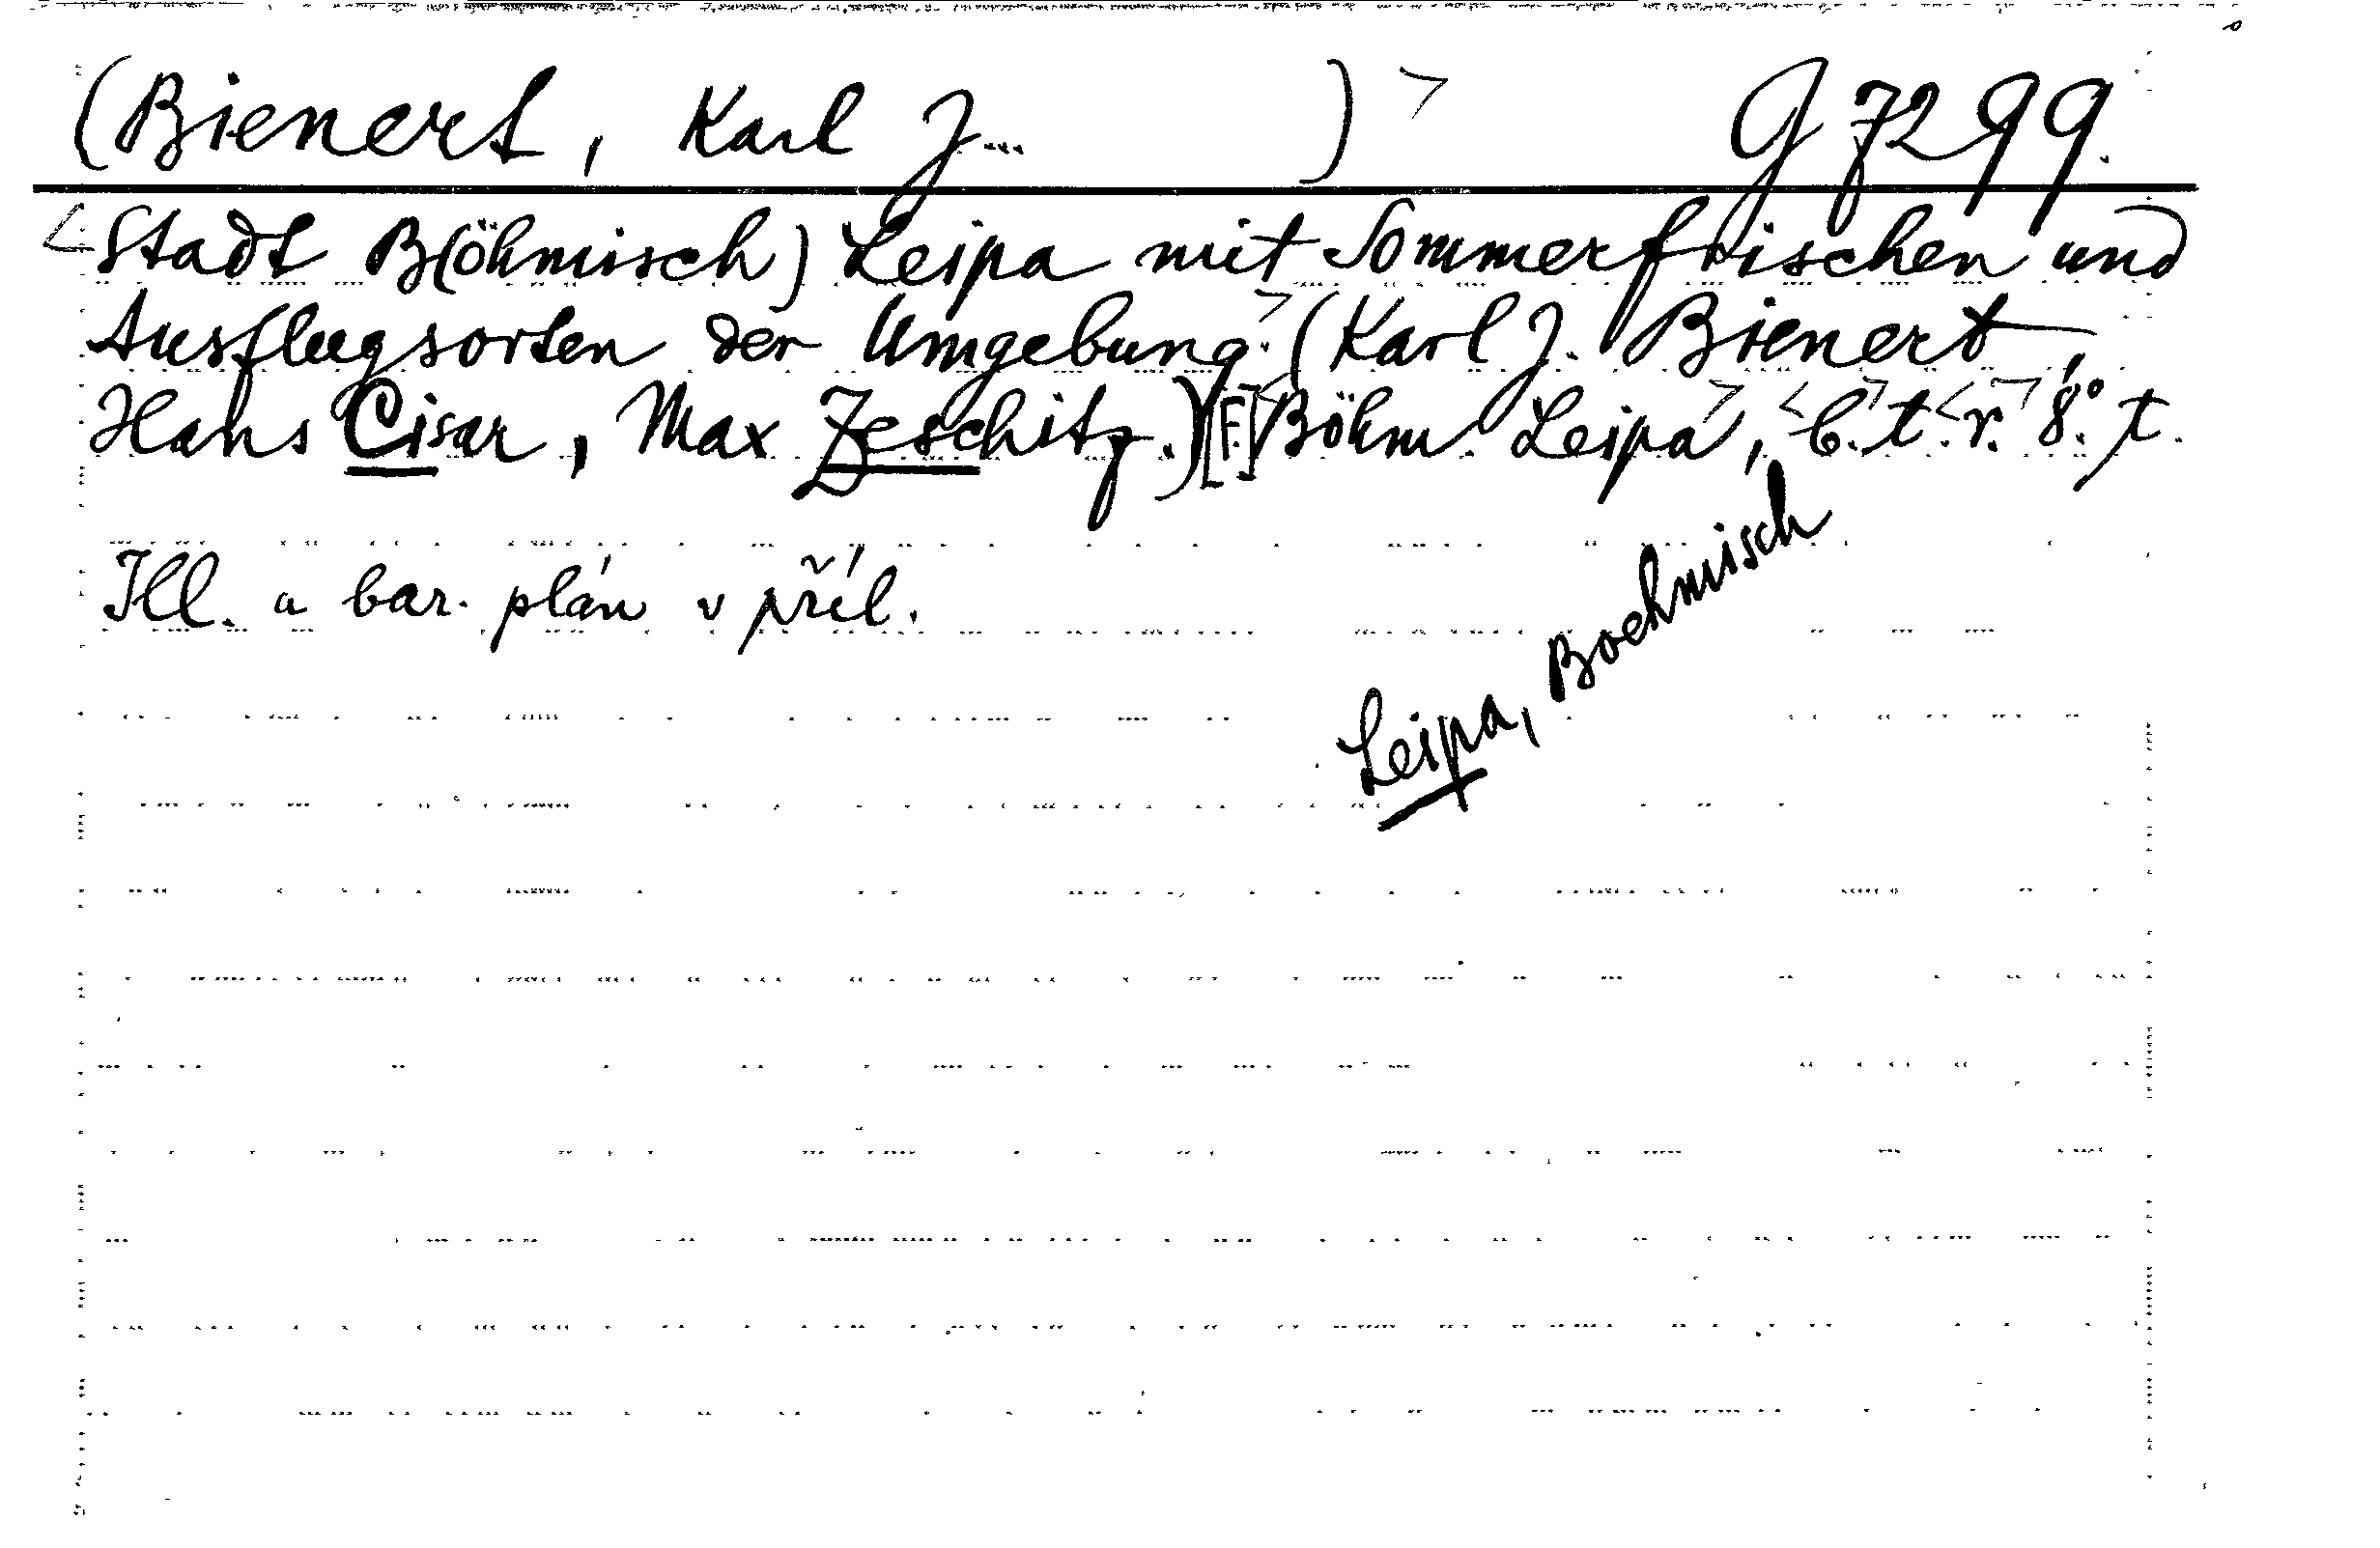 (Bienert, Karl J... ) > G 7299.
<Stadt B(öhmisch) Leipa mit Sommerfrischen und
Ausflugsorten der Umgebung.> (Karl J. Bienert,
Hans Cisar, Max Zeschitz.) [F.] <Böhm. Leipa>, <b.> t. <r.> 8° t.
Ill. a bar. plán v příl.
Leipa, Boehmisch